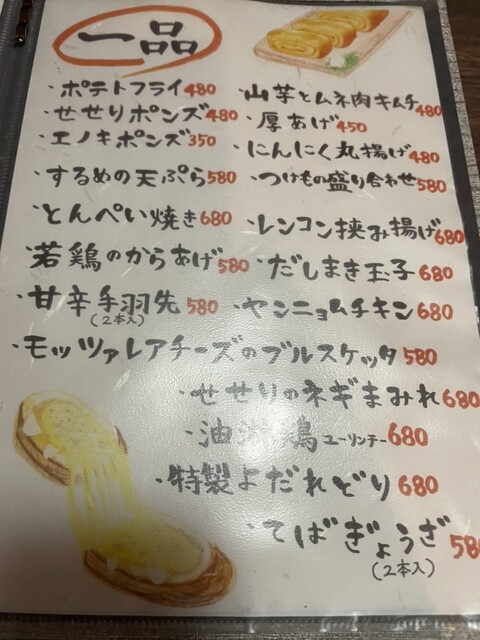 一品
・ポテトフライ480
・山芋とムネ肉キムチ480
・せせりポンズ480
・厚あげ450
・エノキポンズ350
・にんにく丸揚げ480
・するめの天ぷら580
・つけもの盛り合わせ580
・とんぺい焼き680
・レンコン挟み揚げ680
・若鶏のからあげ580
・だしまき玉子680
・甘辛手羽先580
(2本入)
・ヤンニョムチキン680
・モッツァレアチーズのブルスケッタ580
・せせりのネギまみれ680
・油淋鶏ユーリンチー680
・特製よだれどり680
・てばぎょうざ580
(2本入)